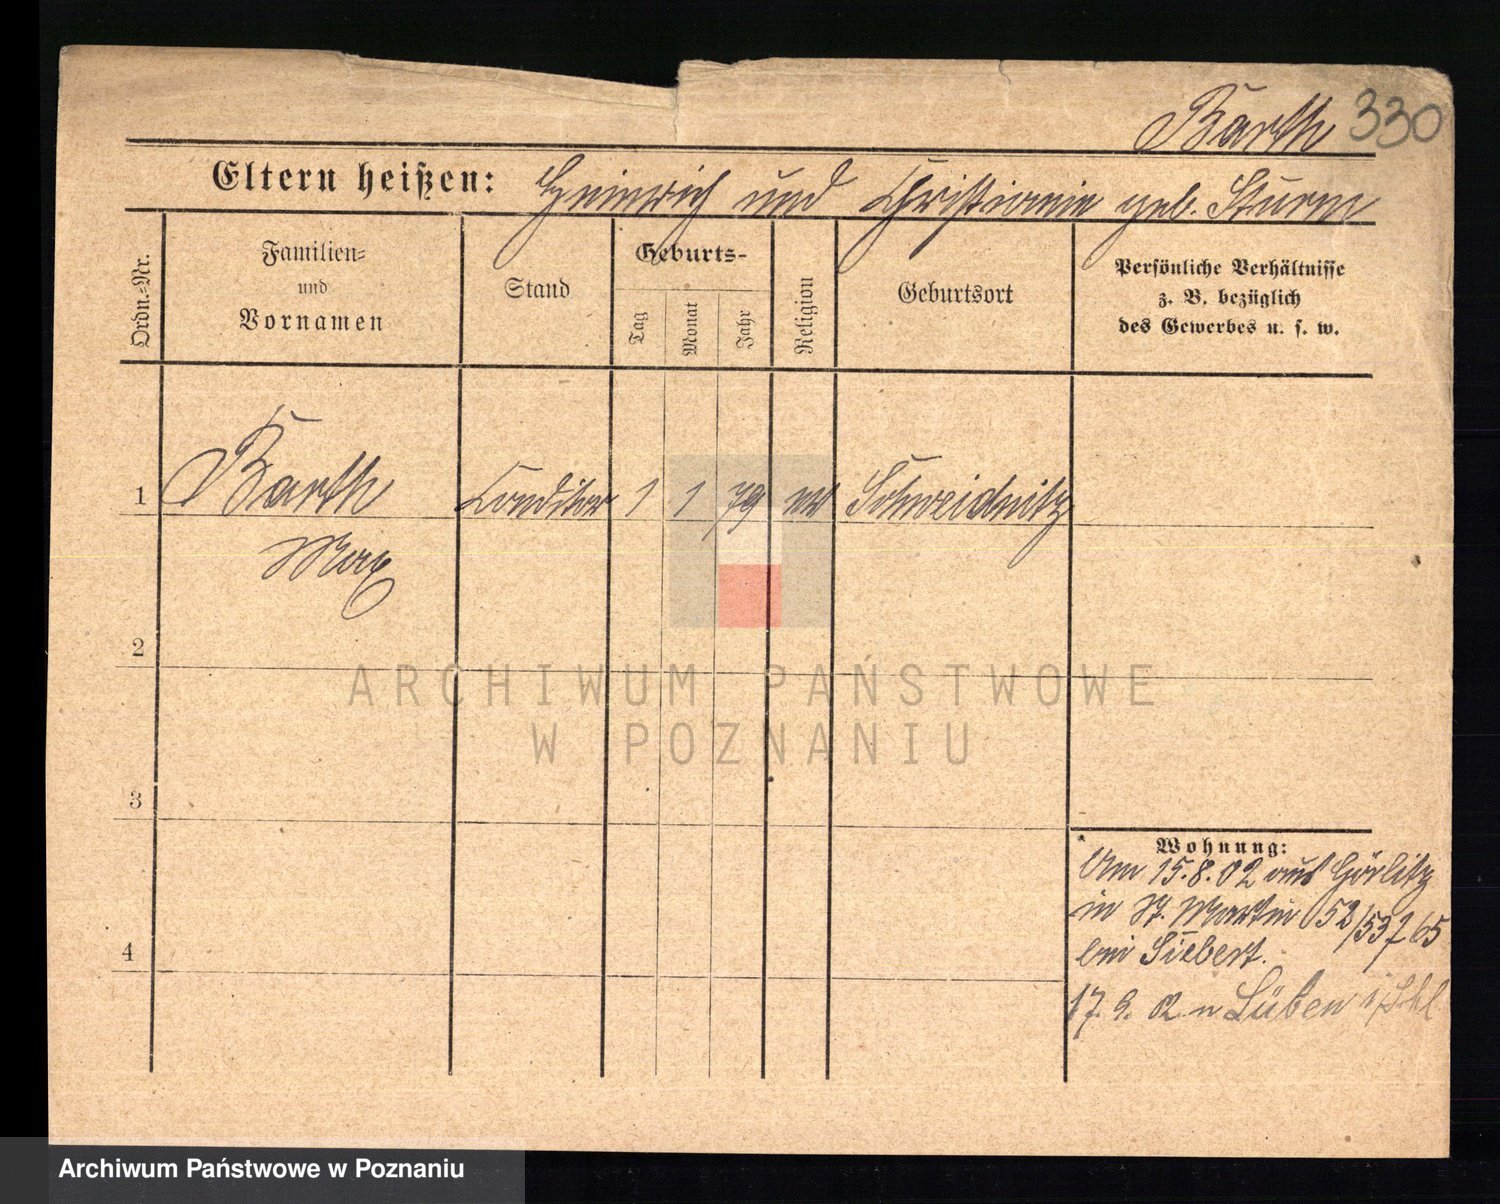 Barth 330
Eltern heißen: Heinrich und Christianie geb. Sturm
Ordn.=Nr.
Familien=
und
Vornamen
Stand
Geburts-
Tag
Monat
Jahr
Religion
Geburtsort
Persönliche Verhältnisse
z. B. bezüglich
des Gewerbes u. s. w.
1 Barth Conditor 1 1 79 Schweidnitz
Max
2
3
4
ARCHIWUM PAŃSTWOWE
W POZNANIU
Wohnung:
Am 15.8.02 aus Görlitz
in St. Martin 52/53 f 65
bei Siebert.
17. 9. 02 n Lüben i/Schl
Archiwum Państwowe w Poznaniu